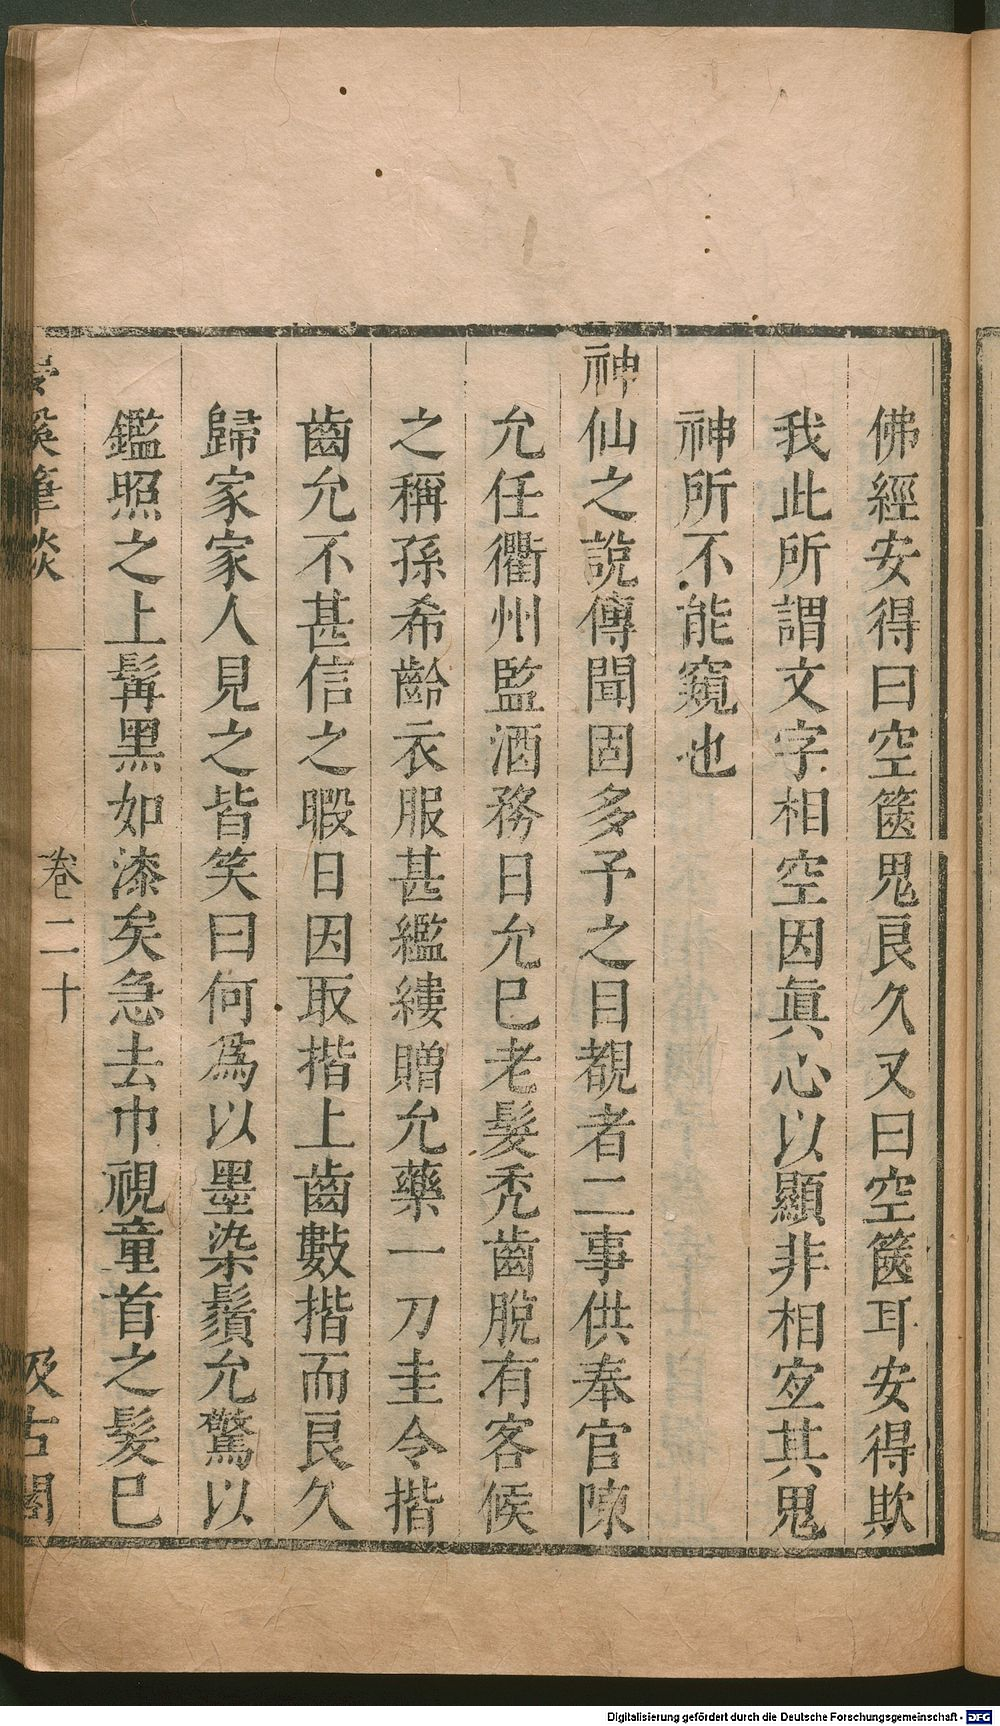 佛經安得曰空篋鬼良久又曰空篋耳安得欺
我此所謂文字相空因眞心以顯非相宜其鬼
神所不能窺也
神仙之說傳聞固多予之目覩者二事供奉官陳
允任衢州監酒務日允巳老髮禿齒脫有客候
之稱孫希齡衣服甚繿縷贈允藥一刀圭令揩
齒允不甚信之暇日因取揩上齒數揩而良久
歸家家人見之皆笑曰何爲以墨染鬚允驚以
鑑照之上髯黑如漆矣急去巾視童首之髮巳
夢溪筆談 卷二十 汲古閣
Digitalisierung gefördert durch die Deutsche Forschungsgemeinschaft - DFG